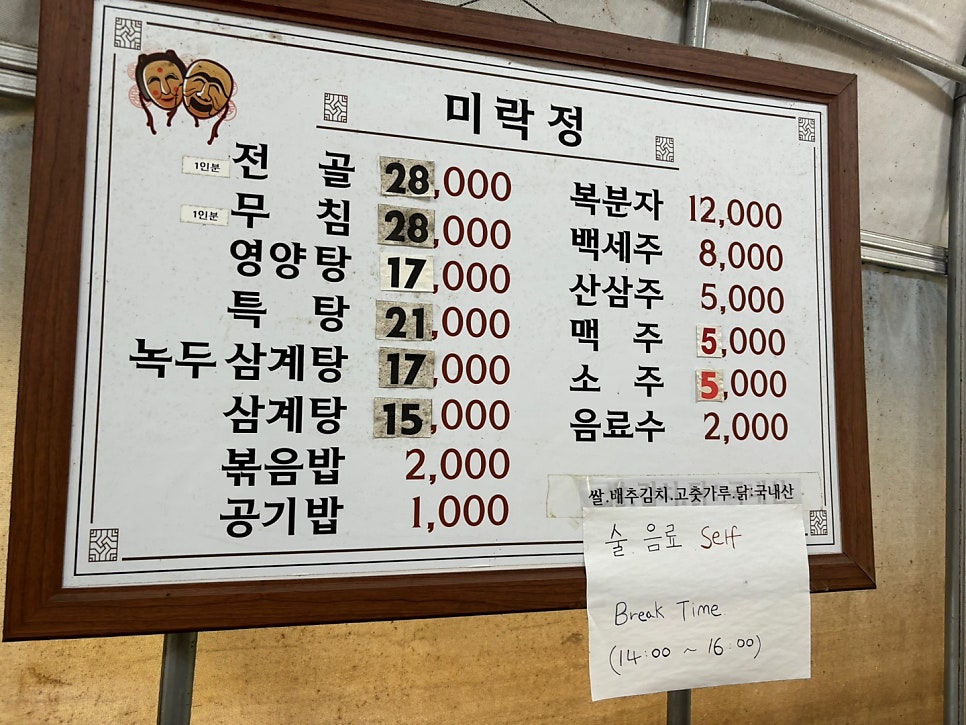 미락정
1인분 전 골 28,000
1인분 무 침 28,000
영양탕 17,000
특 탕 21,000
녹두 삼계탕 17,000
삼계탕 15,000
볶음밥 2,000
공기밥 1,000
복분자 12,000
백세주 8,000
산삼주 5,000
맥 주 5,000
소 주 5,000
음료수 2,000
쌀.배추김치.고춧가루.닭:국내산
술 음료 Self
Break Time
(14:00 ~ 16:00)